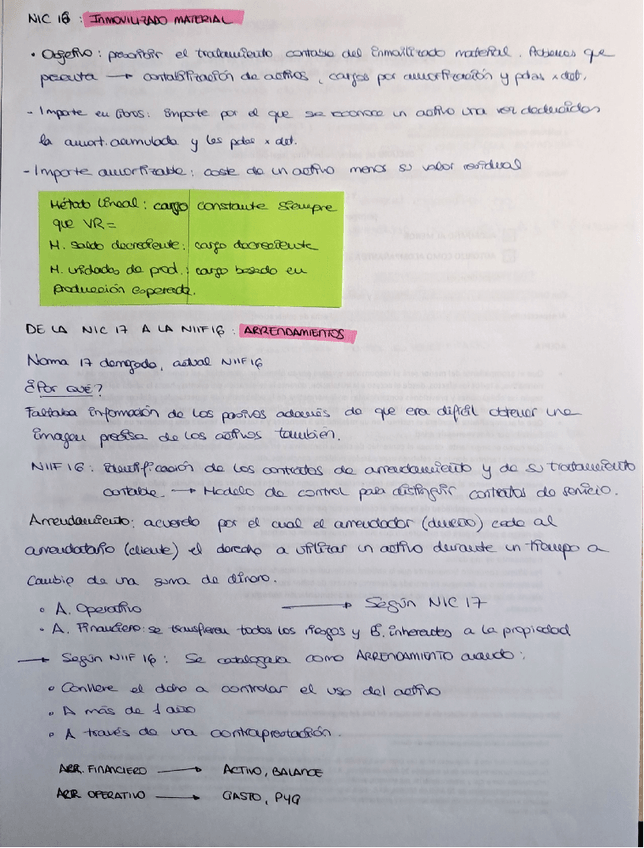 NIC 16 : INMOVILIZADO MATERIAL
• Objetivo: prescribir el tratamiento contable del inmovilizado material. Problemas que
presenta → contabilización de activos, cargos por amortización y pdas x det.
- Importe en libros: importe por el que se reconoce un activo una vez deducidos
la amort. acumulada y las pdas x det.
- Importe amortizable: coste de un activo menos su valor residual
Método lineal: cargo constante siempre
que VR =
M. saldo decreciente: cargo decreciente
M. unidades de prod.: cargo basado en
producción esperada.
DE LA NIC 17 A LA NIIF 16 : ARRENDAMIENTOS
Norma 17 derogada, actual NIIF 16
¿Por qué?
Faltaba información de los pasivos además de que era difícil obtener una
imagen precisa de los activos también.
NIIF 16: Identificación de los contratos de arrendamiento y de su tratamiento
contable. → Modelo de control para distinguir contratos de servicio.
Arrendamiento: acuerdo por el cual el arrendador (dueño) cede al
arrendatario (cliente) el derecho a utilizar un activo durante un tiempo a
cambio de una suma de dinero.
• A. Operativo → Según NIC 17
• A. Financiero: se transfieren todos los riesgos y B. inherentes a la propiedad
→ Según NIIF 16: Se catalogará como ARRENDAMIENTO cuando:
• Conlleve el dcho a controlar el uso del activo
• A más de 1 año
• A través de una contraprestación.
ARR. FINANCIERO → ACTIVO, BALANCE
ARR OPERATIVO → GASTO, PYG